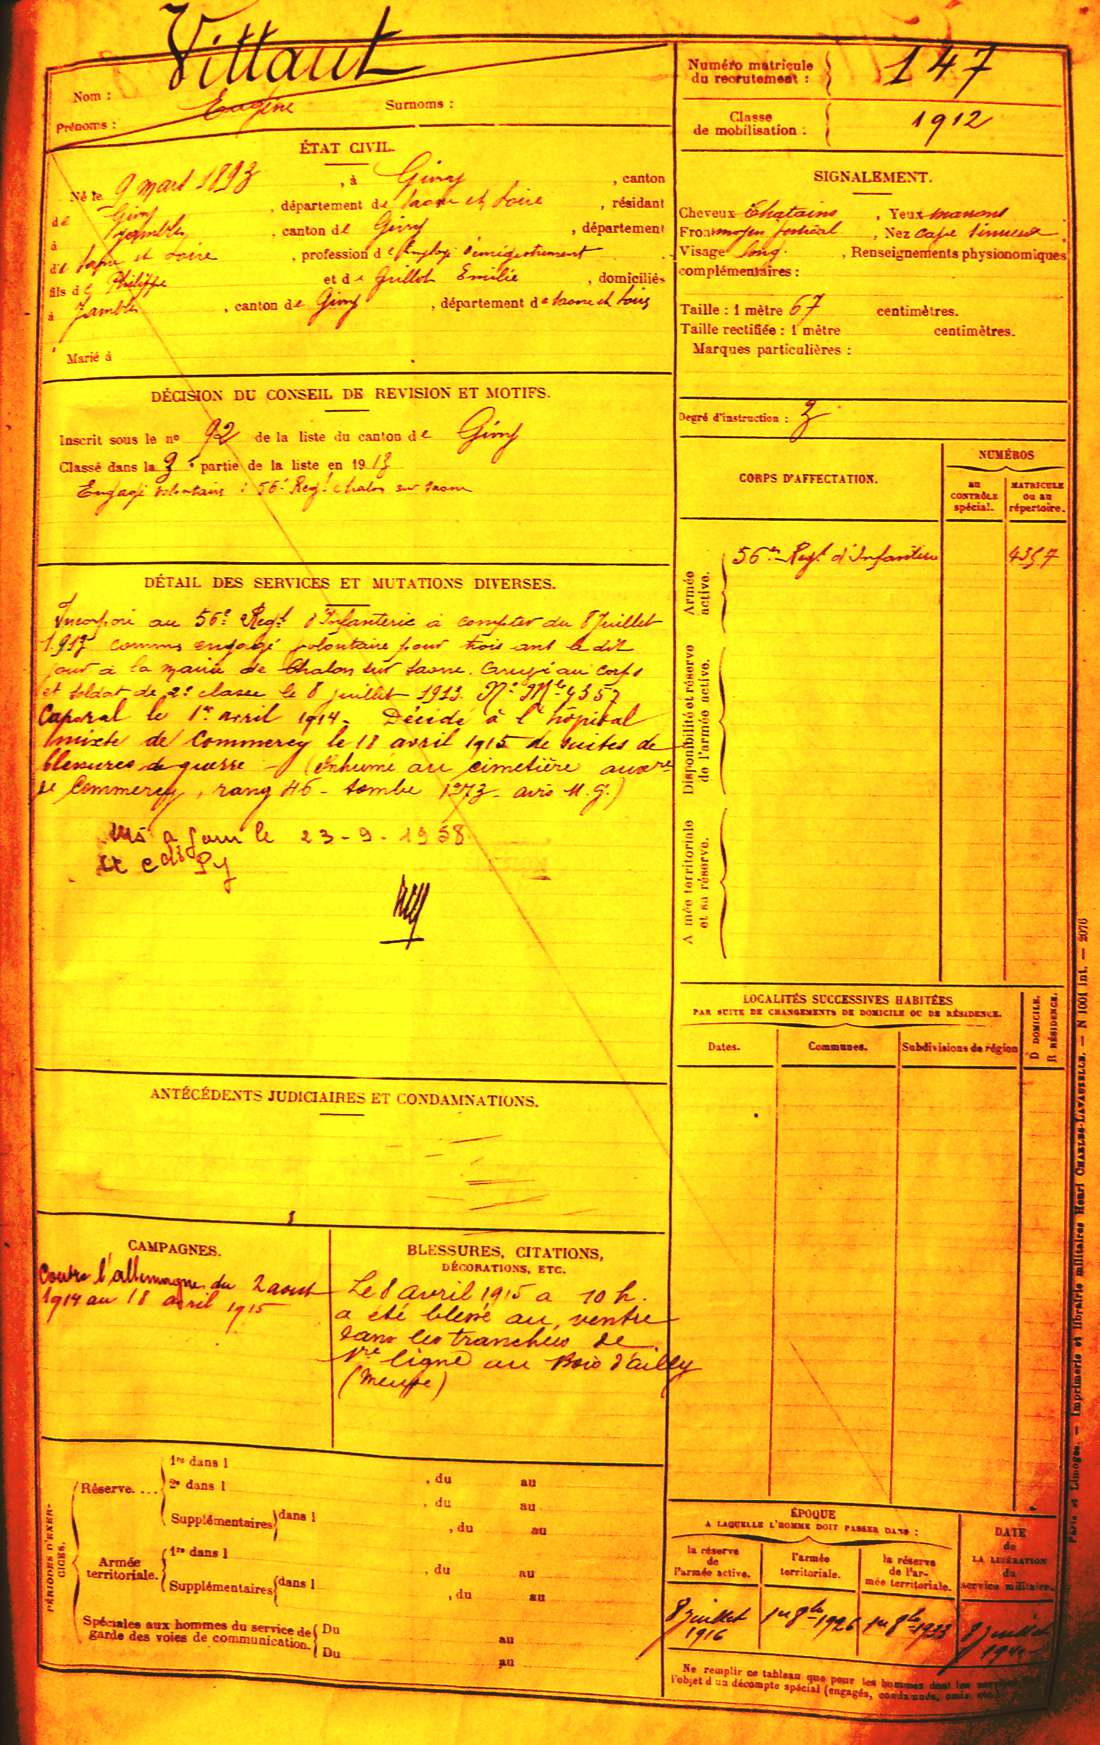 Villaut
Nom :
Eugène
Prénoms : Surnoms :
ÉTAT CIVIL.
Né le 9 mars 1893, à Givry, canton
de Givry, département de Saone et Loire, résidant
à Jambles, canton de Givry, département
de Saone et Loire, profession d'employé d'enregistrement
fils de Philippe et de Guillot Emilie, domiciliés
à Jambles, canton de Givry, département de Saone et Loire
Marié à
DÉCISION DU CONSEIL DE REVISION ET MOTIFS.
Inscrit sous le n° 92 de la liste du canton de Givry
Classé dans la 3e partie de la liste en 1913
Engagé volontaire : 56e Regt chalon sur saone
DÉTAIL DES SERVICES ET MUTATIONS DIVERSES.
Incorporé au 56e Regt d'Infanterie à compter du 8 Juillet
1913 comme engagé volontaire pour trois ans le dit
jour à la mairie de Chalon sur Saone. Arrivé au corps
et soldat de 2e classe le 8 juillet 1913. No Mle 4357
Caporal le 1er avril 1914. Décédé à l'hôpital
mixte de Commercy le 18 avril 1915 de suites de
blessures de guerre (Inhumé au cimetière auxre
de Commercy, rang 46 - tombe 1373 - avis M.G.)
Mis à jour le 23-9-1958
ANTÉCÉDENTS JUDICIAIRES ET CONDAMNATIONS.
CAMPAGNES.
Contre l'allemagne du 2 aout
1914 au 18 avril 1915
BLESSURES, CITATIONS,
DÉCORATIONS, ETC.
Le 8 avril 1915 a 10 h.
a été blessé au ventre
dans les tranchées de
1re ligne au Bois d'ailly
(Meuse)
PÉRIODES D'EXERCICES.
Réserve.... 1re dans l , du au
2e dans l , du au
Supplémentaires dans l , du au
Armée territoriale. 1re dans l , du au
Supplémentaires dans l , du au
Spéciales aux hommes du service de Du au
garde des voies de communication. Du au
Numéro matricule
du recrutement : 147
Classe
de mobilisation : 1912
SIGNALEMENT.
Cheveux Chatains, Yeux marrons
Front moyen vertical, Nez cave sinueux
Visage long, Renseignements physionomiques
complémentaires :
Taille : 1 mètre 67 centimètres.
Taille rectifiée : 1 mètre centimètres.
Marques particulières :
Degré d'instruction : 3
CORPS D'AFFECTATION.
NUMÉROS
au
CONTRÔLE
spécial.
MATRICULE
ou au
répertoire.
Armée
active.
56me Regt d'Infanterie 4357
Disponibilité et réserve
de l'armée active.
Armée territoriale
et sa réserve.
LOCALITÉS SUCCESSIVES HABITÉES
PAR SUITE DE CHANGEMENTS DE DOMICILE OU DE RÉSIDENCE.
Dates. Communes. Subdivisions de région
D DOMICILE.
R RÉSIDENCE.
ÉPOQUE
A LAQUELLE L'HOMME DOIT PASSER DANS :
la réserve
de
l'armée active.
l'armée
territoriale.
la réserve
de l'ar-
mée territoriale.
DATE
de
LA LIBÉRATION
du
service militaire.
8 juillet
1916
1er 8bre 1926
1er 8bre 1933
8 juillet
Ne remplir ce tableau que pour les hommes dont les
l'objet d'un décompte spécial (engagés, condamnés, omis, etc.
Paris et Limoges. — Imprimerie et librairie militaires Henri CHARLES-LAVAUZELLE. — N 1001 int. — 2076